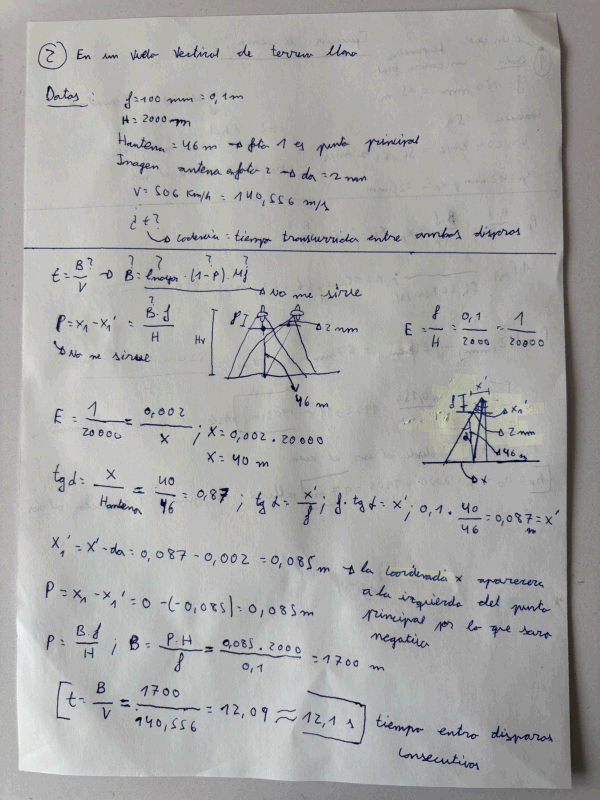 ② En un vuelo vertical de terreno llano
Datos:
f=100 mm = 0,1m
H=2000 m
Hantena = 46 m → foto 1 es punto principal
Imagen antena en foto 2 → da = 2 mm
V= 506 Km/h = 140,556 m/s
¿t?
↳ cadencia: tiempo transcurrido entre ambos disparos
t = B?/V → B? = lmayor? · (1-P)? · Mf?
→ No me sirve
P = x1 - x1' = B? · f / H
↳ No me sirve
Hv
f
2 mm
46 m
E = f/H = 0,1/2000 = 1/20000
E = 1/20000 = 0,002/x ; x = 0,002 · 20000
x = 40 m
x'
f
x1'
2 mm
46 m
α
x
tg α = x/Hantena = 40/46 = 0,87 ; tg α = x'/f ; f · tg α = x' ; 0,1 · 40/46 = 0,087 m = x'
x1' = x' - da = 0,087 - 0,002 = 0,085 m → la coordenada x aparecera
a la izquierda del punto
principal por lo que sara
negativa
P = x1 - x1' = 0 - (-0,085) = 0,085 m
P = B·f/H ; B = P·H/f = 0,085 · 2000/0,1 = 1700 m
t = B/V = 1700/140,556 = 12,09 ≈ 12,1 s tiempo entre disparos
consecutivos